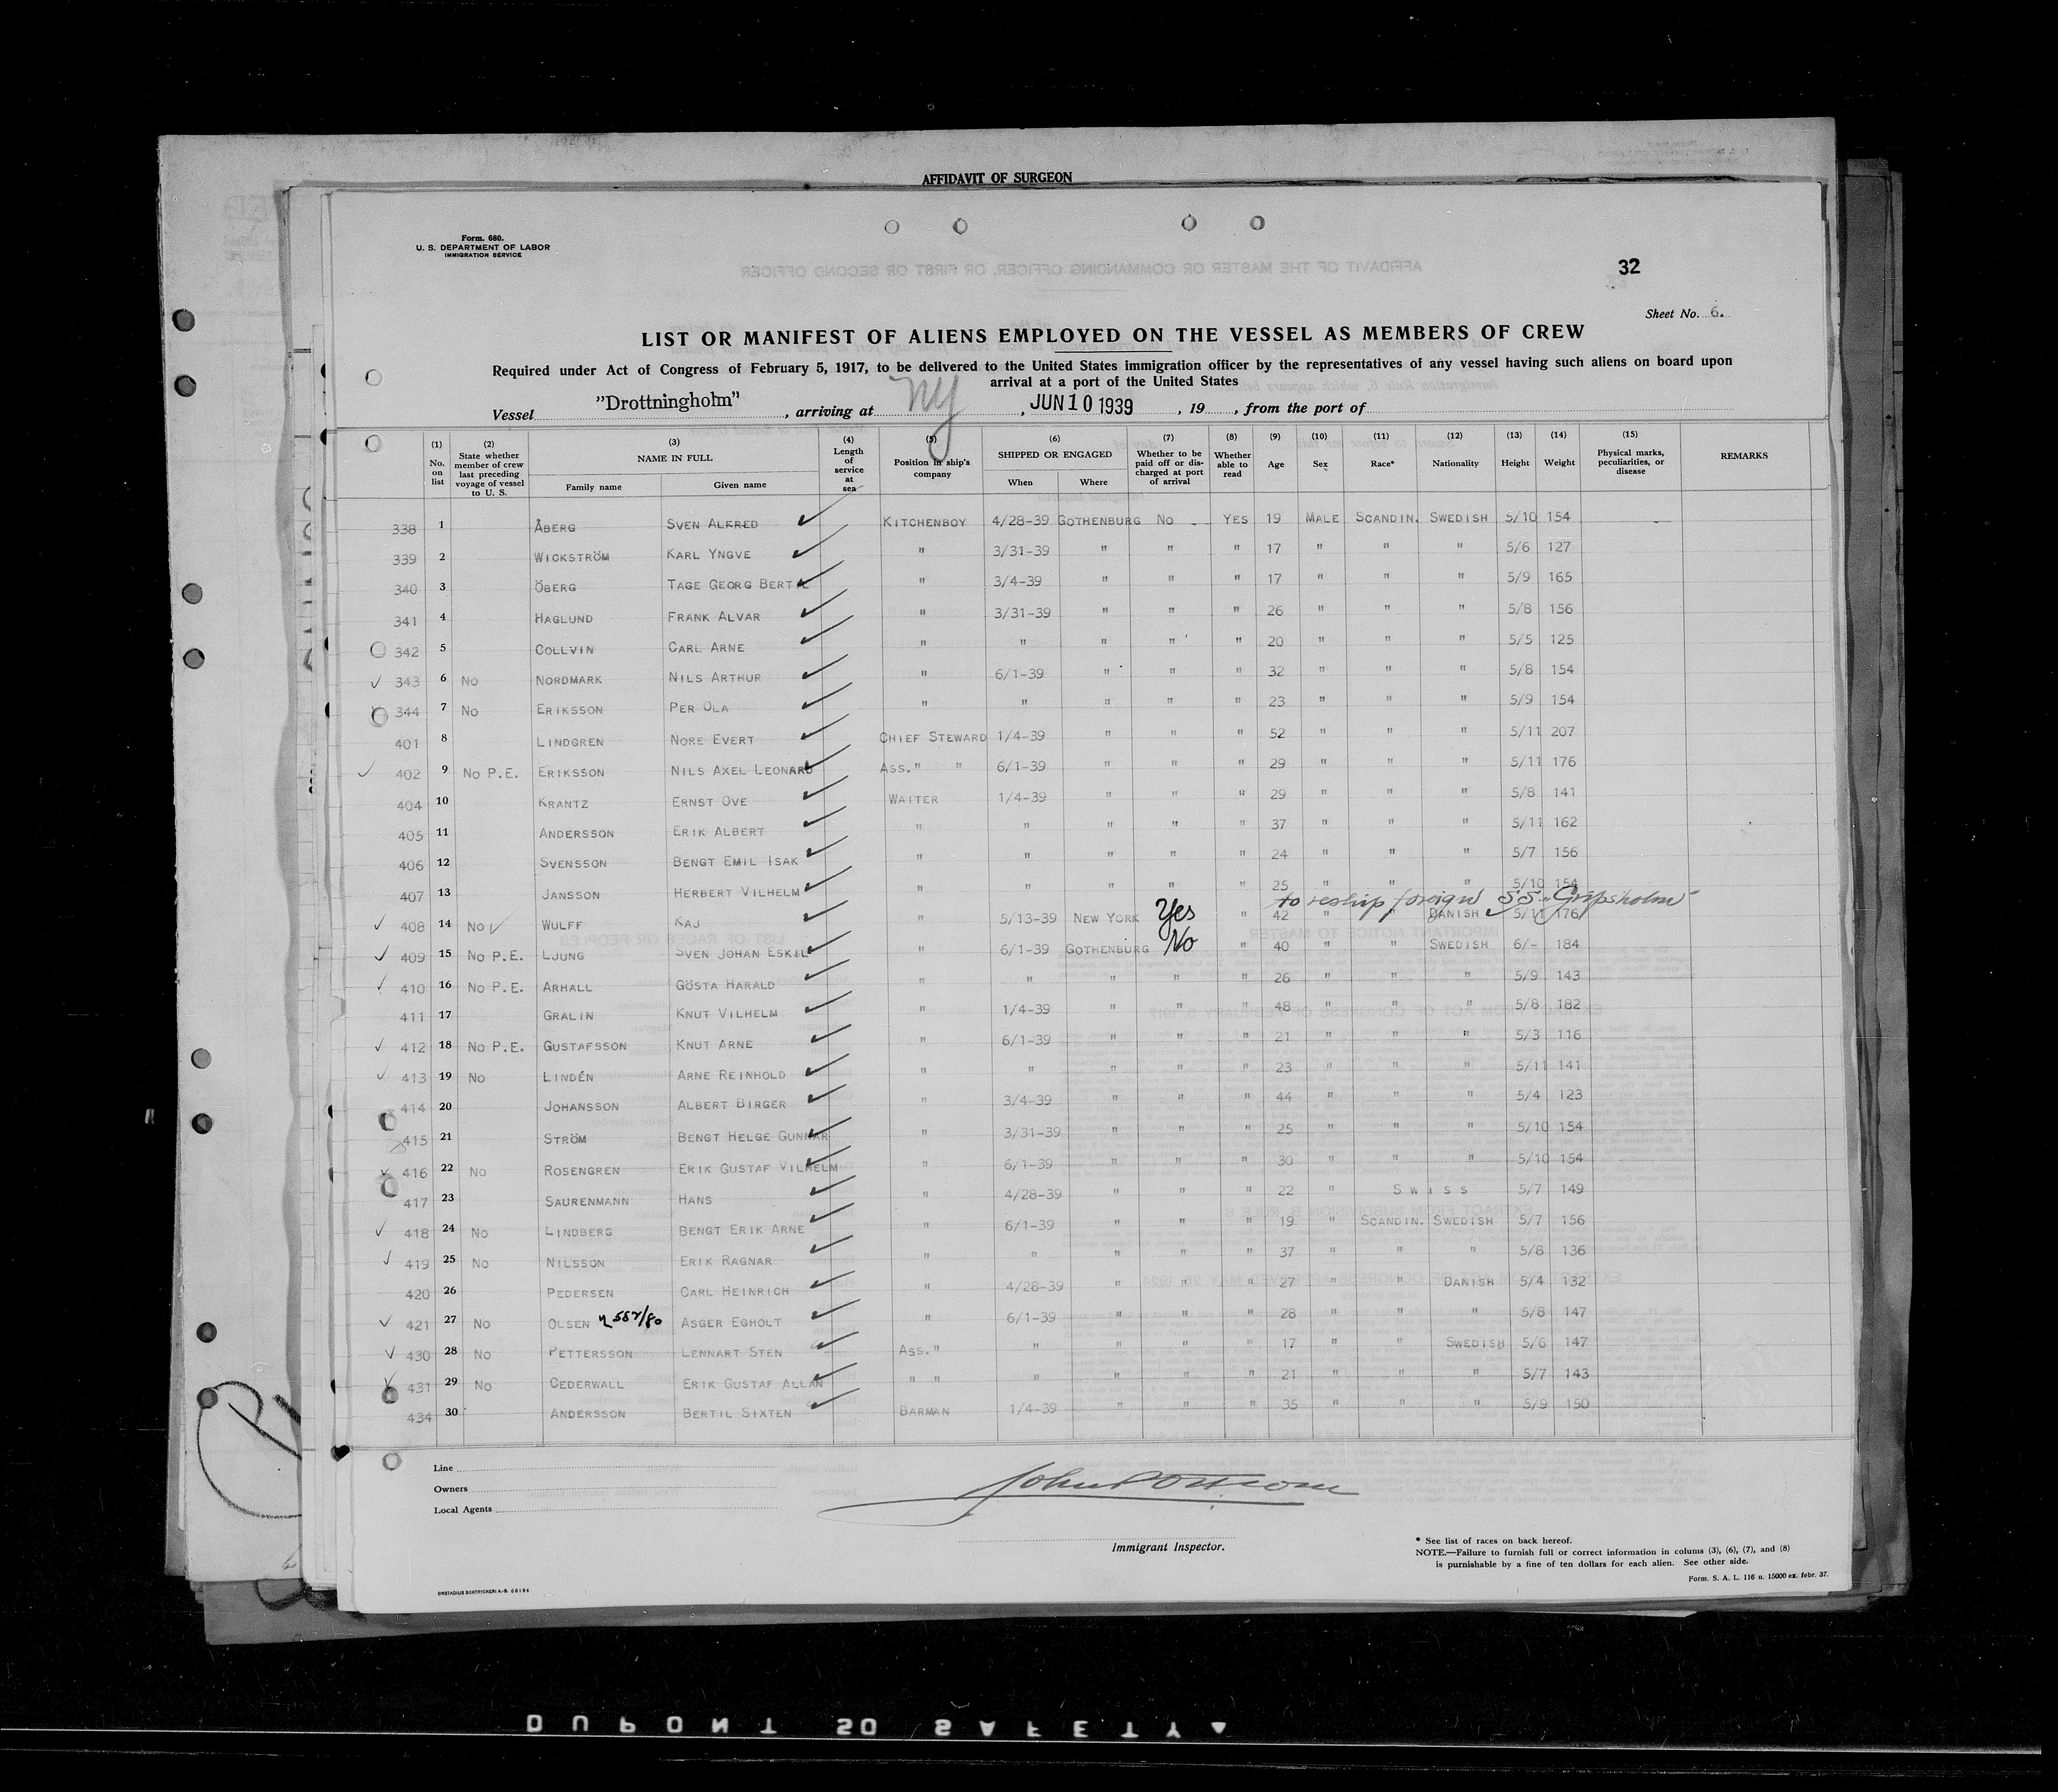 AFFIDAVIT OF SURGEON
Form. 680.
U. S. DEPARTMENT OF LABOR
IMMIGRATION SERVICE
32
Sheet No. 6.
LIST OR MANIFEST OF ALIENS EMPLOYED ON THE VESSEL AS MEMBERS OF CREW
Required under Act of Congress of February 5, 1917, to be delivered to the United States immigration officer by the representatives of any vessel having such aliens on board upon
arrival at a port of the United States
Vessel "Drottningholm", arriving at NY, JUN 10 1939, 19, from the port of
(1) No. on list (2) State whether member of crew last preceding voyage of vessel to U. S. (3) NAME IN FULL Family name Given name (4) Length of service at sea (5) Position in ship's company (6) SHIPPED OR ENGAGED When Where (7) Whether to be paid off or discharged at port of arrival (8) Whether able to read (9) Age (10) Sex (11) Race* (12) Nationality (13) Height (14) Weight (15) Physical marks, peculiarities, or disease REMARKS
338 1 ÅBERG SVEN ALFRED KITCHENBOY 4/28-39 GOTHENBURG No YES 19 MALE SCANDIN. SWEDISH 5/10 154
339 2 WICKSTRÖM KARL YNGVE " 3/31-39 " " " 17 " " " 5/6 127
340 3 ÖBERG TAGE GEORG BERTIL " 3/4-39 " " " 17 " " " 5/9 165
341 4 HAGLUND FRANK ALVAR " 3/31-39 " " " 26 " " " 5/8 156
342 5 COLLVIN CARL ARNE " " " " " 20 " " " 5/5 125
343 6 No NORDMARK NILS ARTHUR " 6/1-39 " " " 32 " " " 5/8 154
344 7 No ERIKSSON PER OLA " " " " " 23 " " " 5/9 154
401 8 LINDGREN NORE EVERT CHIEF STEWARD 1/4-39 " " " 52 " " " 5/11 207
402 9 No P.E. ERIKSSON NILS AXEL LEONARD ASS." " 6/1-39 " " " 29 " " " 5/11 176
404 10 KRANTZ ERNST OVE WAITER 1/4-39 " " " 29 " " " 5/8 141
405 11 ANDERSSON ERIK ALBERT " " " " " 37 " " " 5/11 162
406 12 SVENSSON BENGT EMIL ISAK " " " " " 24 " " " 5/7 156
407 13 JANSSON HERBERT VILHELM " " " " " 25 " " " 5/10 154
to reship foreign S.S. "Gripsholm"
408 14 No WULFF KAJ " 5/13-39 NEW YORK Yes " 42 " " DANISH 5/11 176
409 15 No P.E. LJUNG SVEN JOHAN ESKIL " 6/1-39 GOTHENBURG No " 40 " " SWEDISH 6/- 184
410 16 No P.E. ARHALL GÖSTA HARALD " " " " " 26 " " " 5/9 143
411 17 GRALIN KNUT VILHELM " 1/4-39 " " " 48 " " " 5/8 182
412 18 No P.E. GUSTAFSSON KNUT ARNE " 6/1-39 " " " 21 " " " 5/3 116
413 19 No LINDÉN ARNE REINHOLD " " " " " 23 " " " 5/11 141
414 20 JOHANSSON ALBERT BIRGER " 3/4-39 " " " 44 " " " 5/4 123
415 21 STRÖM BENGT HELGE GUNNAR " 3/31-39 " " " 25 " " " 5/10 154
416 22 No ROSENGREN ERIK GUSTAF VILHELM " 6/1-39 " " " 30 " " " 5/10 154
417 23 SAURENMANN HANS " 4/28-39 " " " 22 " SWISS 5/7 149
418 24 No LINDBERG BENGT ERIK ARNE " 6/1-39 " " " 19 " SCANDIN. SWEDISH 5/7 156
419 25 No NILSSON ERIK RAGNAR " " " " " 37 " " " 5/8 136
420 26 PEDERSEN CARL HEINRICH " 4/28-39 " " " 27 " " DANISH 5/4 132
421 27 No OLSEN ASGER EGHOLT " 6/1-39 " " " 28 " " " 5/8 147
430 28 No PETTERSSON LENNART STEN ASS." " " " " 17 " " SWEDISH 5/6 147
431 29 No CEDERWALL ERIK GUSTAF ALLAN " " " " " " 21 " " " 5/7 143
434 30 ANDERSSON BERTIL SIXTEN BARMAN 1/4-39 " " " 35 " " " 5/9 150
Line
Owners
Local Agents
Immigrant Inspector.
* See list of races on back hereof.
NOTE.—Failure to furnish full or correct information in colums (3), (6), (7), and (8)
is purnishable by a fine of ten dollars for each alien. See other side.
Form. S. A. L. 116 n. 15000 ex. febr. 37.
DUPONT SO SAFETY